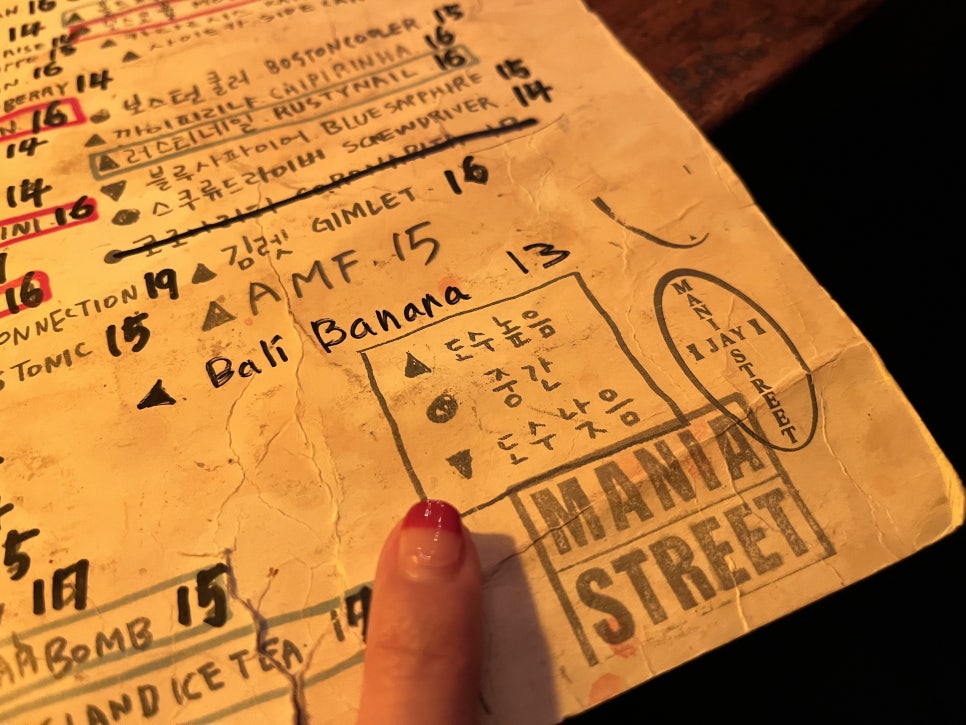 16
14
15
16
BERRY 14
16
14
14
INI 16
16
ONNECTION 19
TONIC 15
15
● 보스턴쿨러 BOSTONCOOLER 16
▲ 까이피리냐 CHIPIRINHA 16
▲ 러스티네일 RUSTYNAIL 16
▼ 블루사파이어 BLUESAPPHIRE 15
● 스쿠류드라이버 SCREWDRIVER 14
▲ 김렛 GIMLET 16
▲ AMF. 15
▲ Bali Banana 13
▲ 도수높음
● 중간
▼ 도수낮음
MANIA
JAY
STREET
MANIA
STREET
5
17
BOMB 15
LAND ICE TEA. 17